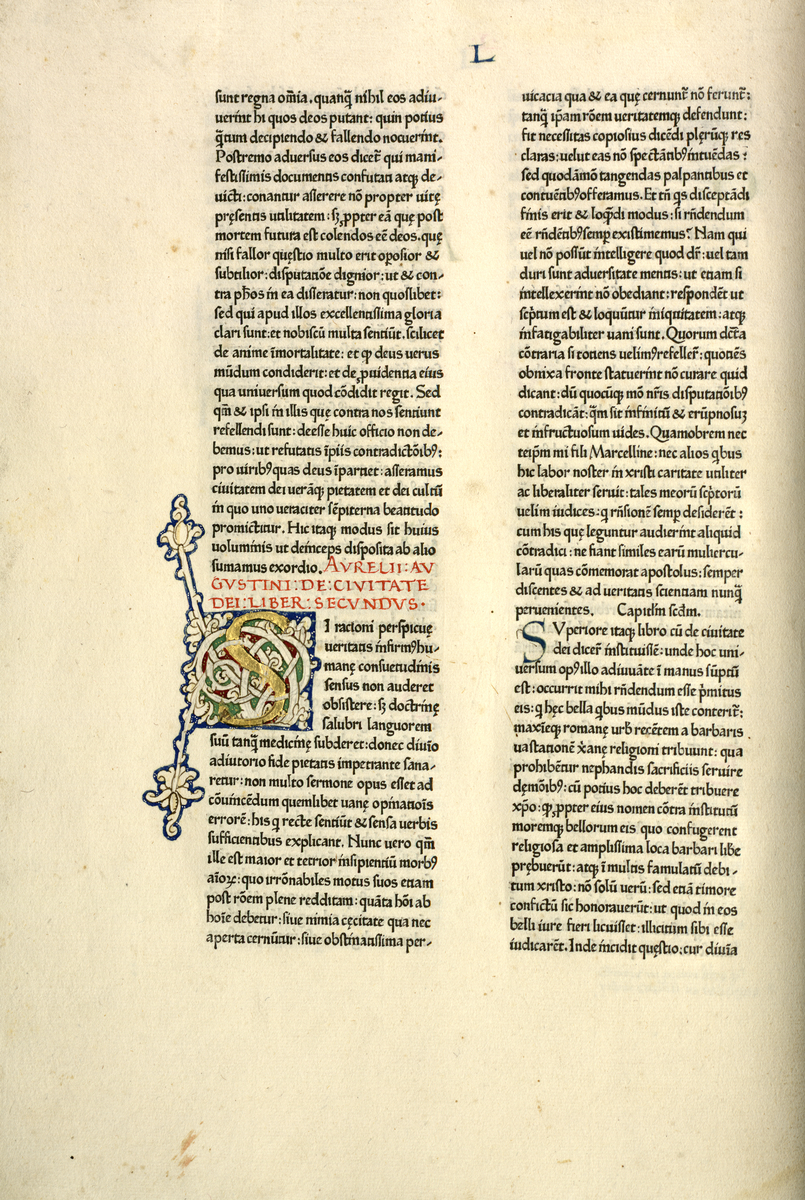 L
sunt regna om̄ia. quanq̄ nihil eos adiu-
uerint hi quos deos putant: quin potius
q̄tum decipiendo & fallendo nocuerint.
Postremo aduersus eos dicet̄ qui mani-
festissimis documentis confutati atq; de-
uicti: conantur asserere nō propter uitę
pręsentis utilitatem: s; ꝓpter eā quę post
mortem futura est colendos eē deos. quę
nisi fallor quęstio multo erit oposior &
subtilior: disputatiōe dignior: ut & con-
tra ph̄os in ea disseratur: non quoslibet:
sed qui apud illos excellentissima gloria
clari sunt: et nobiscū multa sentiūt. scilicet
de anime īmortalitate: et ꝙ deus uerus
mūdum condiderit: et de ꝓuidentia eius
qua uniuersum quod cōdidit regit. Sed
qm̄ & ipsi in illis que contra nos sentiunt
refellendi sunt: deesse huic officio non de-
bemus: ut refutatis īpiis contradictōib9:
pro uirib9 quas deus īpartiet: asseramus
ciuitatem dei uerāq; pietatem et dei cultū
in quo uno ueraciter sēpiterna beatitudo
promictitur. Hic itaq; modus sit huius
uoluminis ut deinceps disposita ab alio
sumamus exordio. AVRELII: AV
GVSTINI: DE: CIVITATE
DEI: LIBER: SECVNDVS.
SI racioni perspicuę
ueritatis infirm9 hu-
manę consuetudinis
sensus non auderet
obsistere: s; doctrinę
salubri languorem
suū tanq̄ medicinę subderet: donec diuio
adiutorio fide pietatis impetrante sana-
retur: non multo sermone opus esset ad
cōuincēdum quemlibet uanę opinatiois
errorē: his q recte sentiūt & sensa uerbis
sufficientibus explicant. Nunc uero qm̄
ille est maior et tetrior insipientiū morb9
aīoꝝ: quo irrōnabiles motus suos etiam
post rōem plene redditam: quāta hōi ab
hoīe debetur: siue nimia cęcitate qua nec
aperta cernūtur: siue obstinatissima per-
uicacia qua & ea quę cernunt̄ nō ferunt̄:
tanq̄ ip̄am rōem ueritatemq; defendunt:
fit necessitas copiosius dicēdi plęrūq; res
claras: uelut eas nō spectātib9 intuēdas:
sed quodāmō tangendas palpantibus et
contuētib9 offeramus. Et tn̄ q̇s disceptādi
finis erit & loq̄di modus: si rn̄dendum
eē rn̄dētib9 semp existimemus? Nam qui
uel nō possūt intelligere quod dr̄: uel tam
duri sunt aduersitate mentis: ut etiam si
intellexerint nō obediant: respondēt ut
sc̄ptum est & loquūtur iniquitatem: atq;
infatigabiliter uani sunt. Quorum dc̄ta
cōtraria si totiens uelim9 refeller̄: quotiēs
obnixa fronte statuerint nō curare quid
dicant: dū quocūq; mō nr̄is disputatiōib9
contradicāt: q̄m sit infinitū & erūpnosuꝫ
et infructuosum uides. Quamobrem nec
teip̄m mi fili Marcelline: nec alios q̇bus
hic labor noster in xristi caritate utiliter
ac liberaliter seruit: tales meorū sc̄ptorū
uelim iudices: q rn̄sionē semp desiderēt:
cum his quę leguntur audierint aliquid
cōtradici: ne fiant similes earū muliercu-
larū quas cōmemorat apostolus: semper
discentes & ad ueritatis scientiam nunq̄
peruenientes. Capitlm scdm.
SVperiore itaq; libro cū de ciuitate
dei dicer̄ instituissē: unde hoc uni-
uersum op9 illo adiuuāte ī manus sūptū
est: occurrit mihi rn̄dendum esse p̄mitus
eis: q hęc bella q̇bus mūdus iste conterit̄:
maxīeq; romanę urb̄ recētem a barbaris
uastationē x̄anę religioni tribuunt: qua
prohibētur nephandis sacrificiis seruire
dęmōib9: cū potius hoc deberēt tribuere
xp̄o: ꝙ ꝓpter eius nomen cōtra institutū
moremq; bellorum eis quo confugerent
religiosa et amplissima loca barbari libe
prębuerūt: atq; ī multis famulatū debi-
tum xristo: nō solū uerū: sed etiā timore
confictū sic honorauerūt: ut quod in eos
belli iure fieri licuisset: illicitum sibi esse
iudicarēt. Inde incidit quęstio: cur diuīa